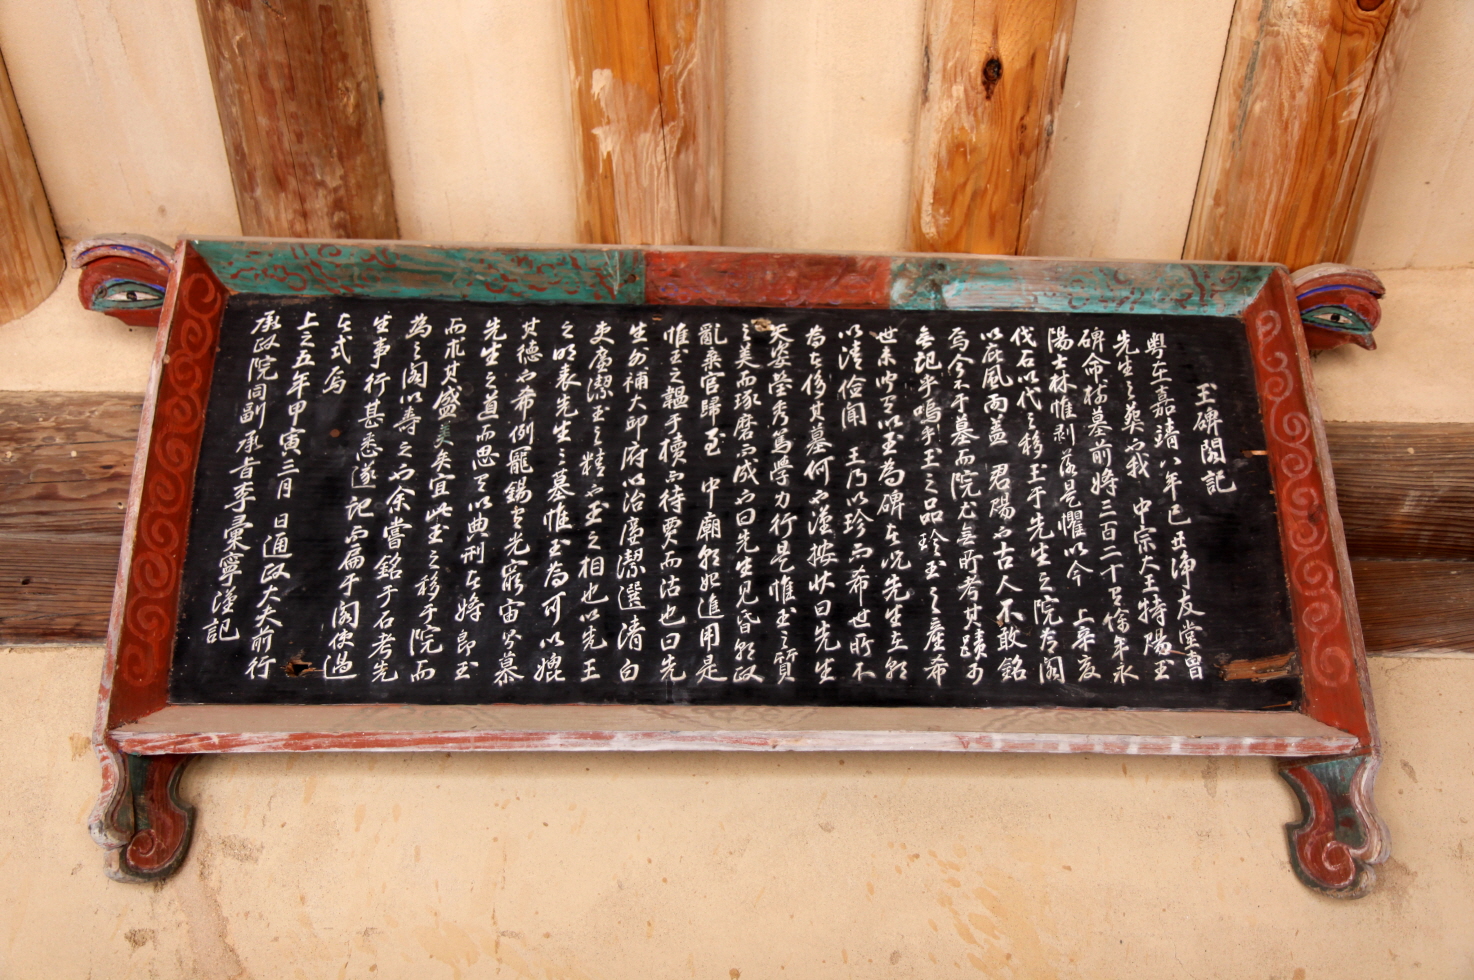 玉碑閣記
粤在嘉靖八年己丑淨友堂曺
先生之葬也我 中宗大王特賜玉
碑命樹墓前將三百二十又餘年永
陽士林惟剥落是懼以今 上辛亥
伐石以代之移玉于先生之院而閣
以庇風雨盖 君賜也古人不敢銘
焉今不于墓而院尤無所考其蹟可
無記乎嗚乎玉之品珍玉之産希
世未聞又以玉為碑者况先生立朝
以淸儉聞 王乃以珍而希世所不
為者侈其墓何也謹按狀曰先生
天姿瑩秀篤學力行是惟玉之質
之美而琢磨而成也曰先生見昏朝政
亂棄官歸至 中廟朝始進用是
惟玉之韞于櫝而待賈而沽也曰先
生出補大邱府以治廉潔選清白
吏廉潔玉之精也玉之相也以先王
之明表先生之墓惟玉為可以媲
其德也希例寵錫光窮宙公慕
先生之道而思又以典刑者將 郎玉
而求其盛美矣宜此玉之移于院而
為之閣以壽之也余嘗銘于石考先
生事行甚悉遂記而扁于閣使過
者式焉
上之五年甲寅三月 日通政大夫前行
承政院同副承旨李彙寧謹記